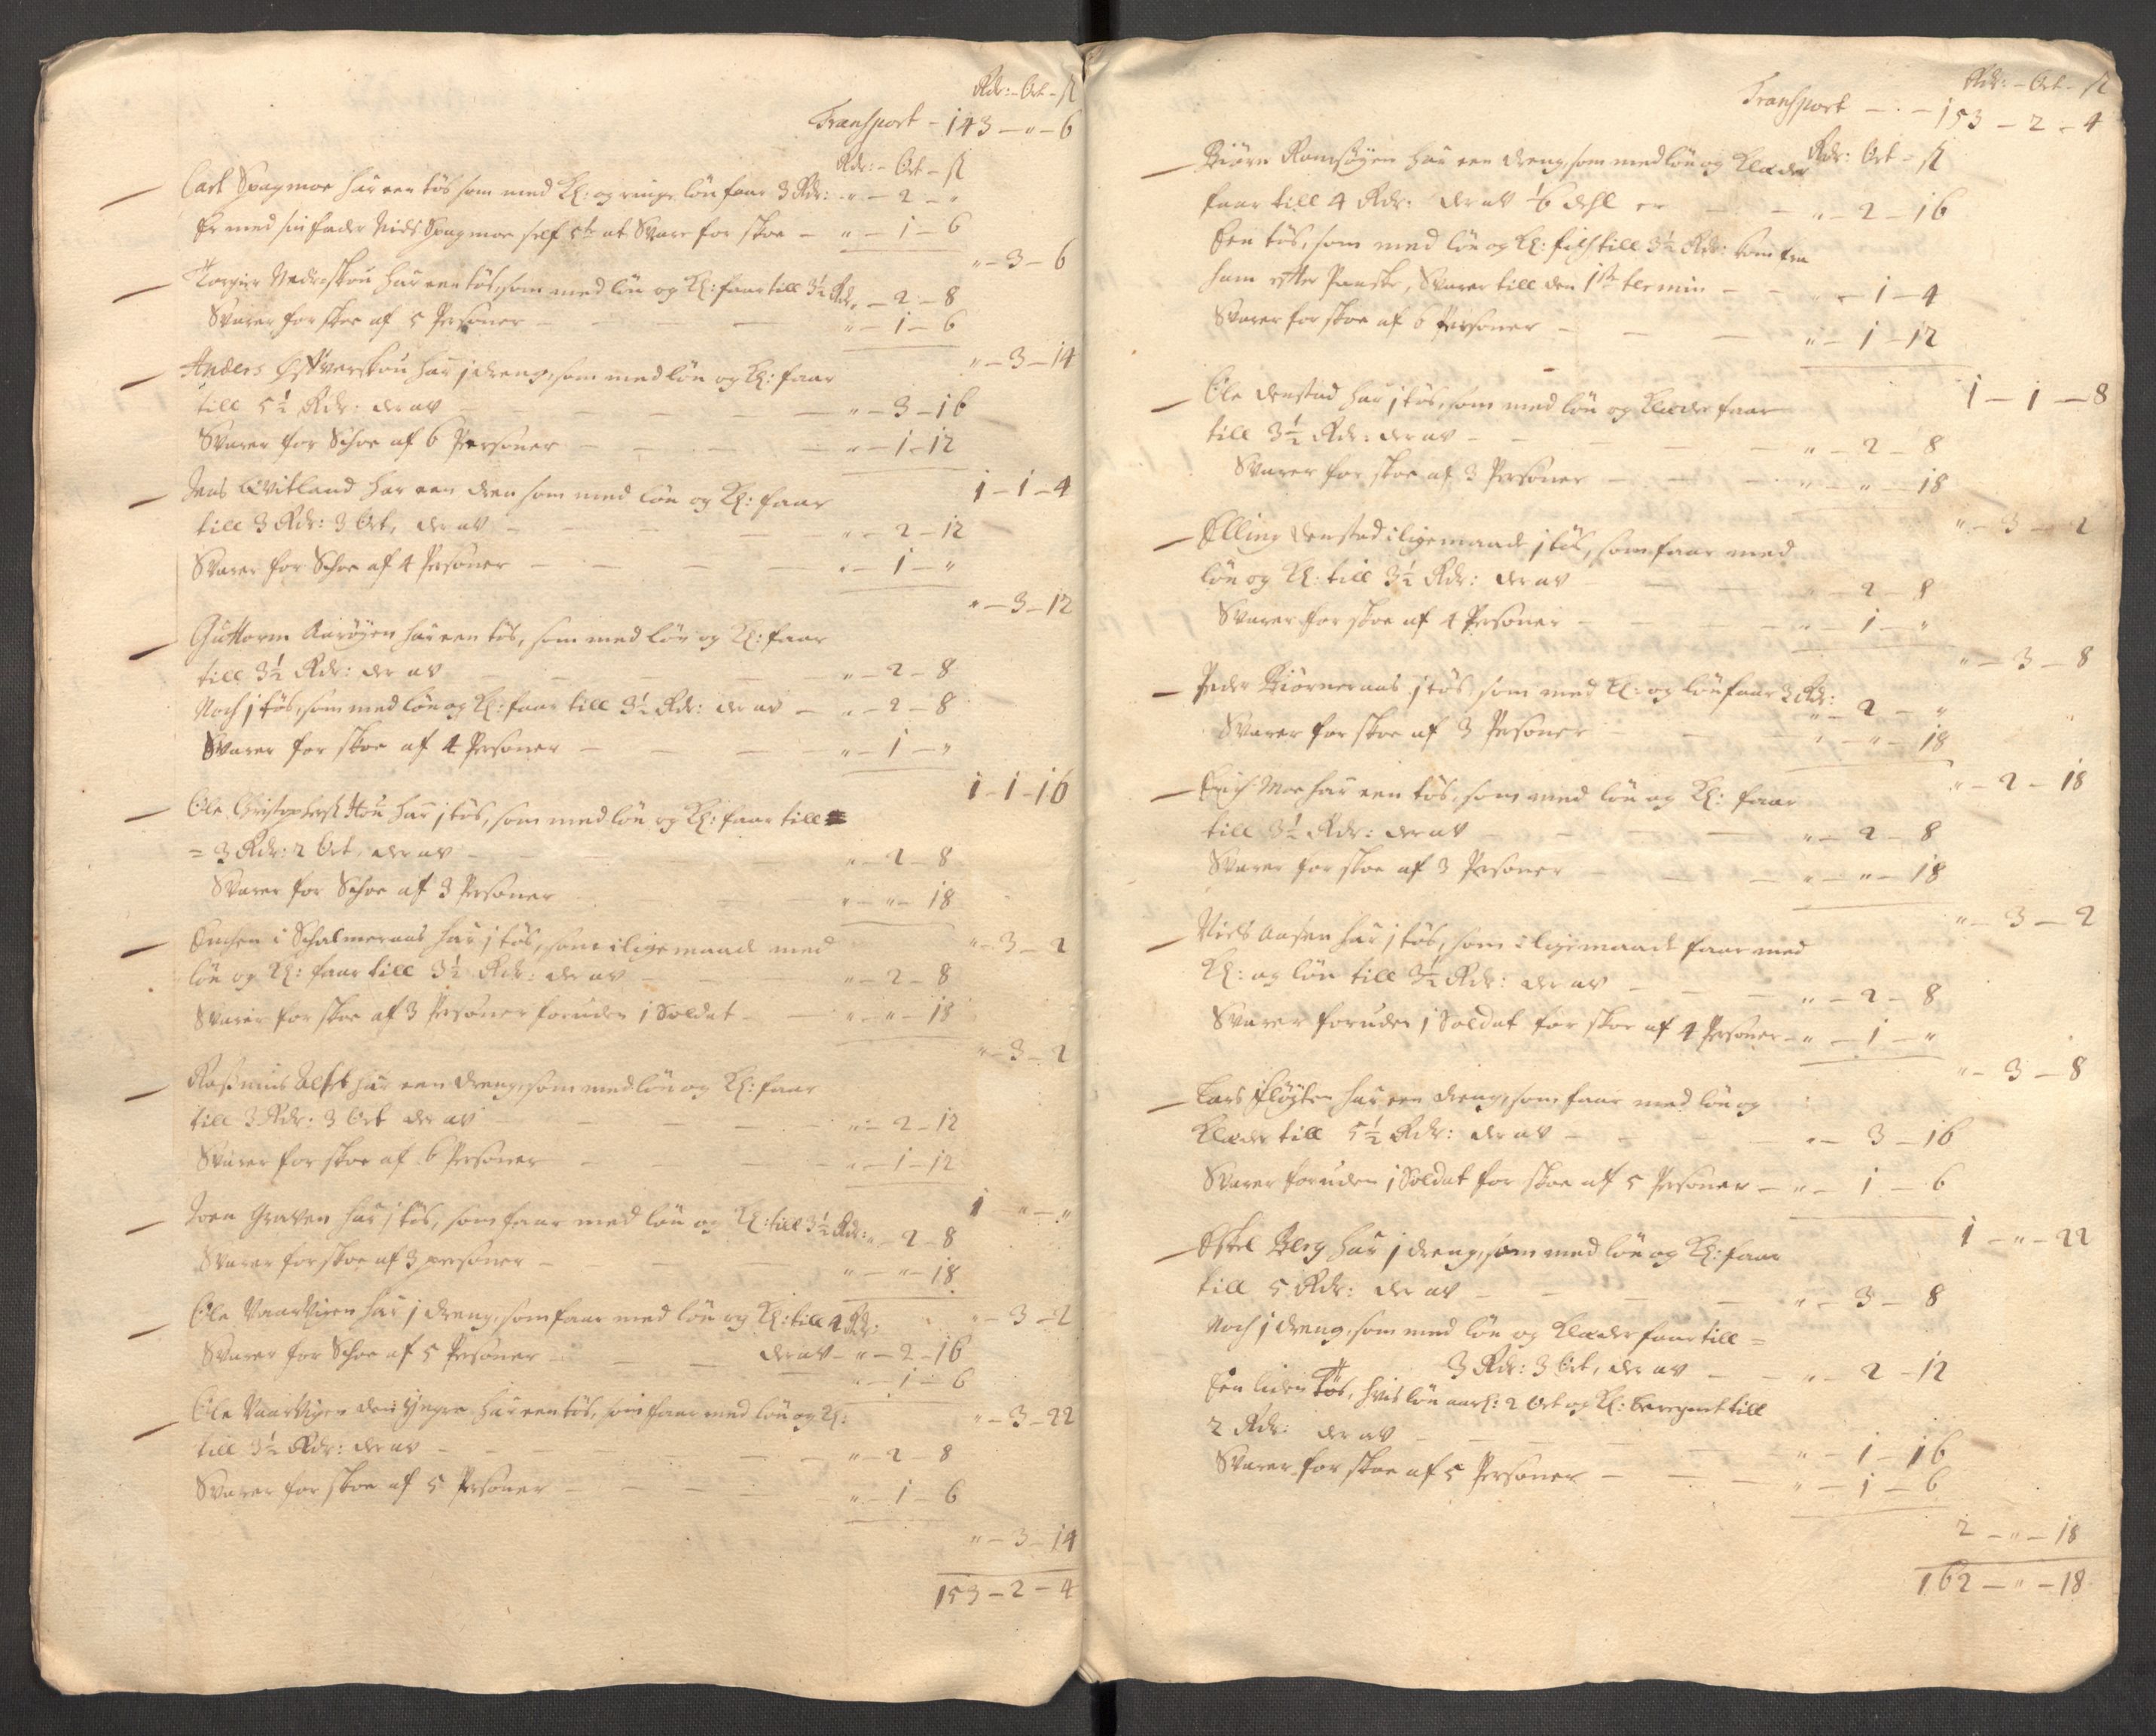 Rdr: - Ort - ß
Transport - 143 - " - 6
Rdr: - Ort - ß
Carl Spagmoe har een tøs som med Kl: og ringe løn faar 3 Rdr: " - 2 - "
Er med sin fader Niels Spagmoe self 5te at Svare for skoe - " - 1 - 6
" - 3 - 6
Torgier Nedreskou har een tøs, som med løn og Kl: faar till 3½ Rdr. - 2 - 8
Svarer for skoe af 5 Personer - " - 1 - 6
" - 3 - 14
Anders Østverskou har j dreng, som med løn og Kl: faar
till 5½ Rdr: der av - " - 3 - 16
Svarer for Schoe af 6 Personer - " - 1 - 12
1 - 1 - 4
Jens Qvitland har een dren som med løn og Kl: faar
till 3 Rdr: 3 Ort, der av - " - 2 - 12
Svarer for Schoe af 4 Personer - " - 1 - "
" - 3 - 12
Guttorm Aarøyen har een tøs, som med løn og Kl: faar
till 3½ Rdr: der av " - 2 - 8
Noch j tøs, som med løn og Kl: faar till 3½ Rdr: der av - " - 2 - 8
Svarer for skoe af 4 Personer - " - 1 - "
1 - 1 - 16
Ole Christophers: Hou har j tøs, som med løn og Kl: faar till
= 3 Rdr: 2 Ort, der av - " - 2 - 8
Svarer for Schoe af 3 Personer " - " - 18
" - 3 - 2
Enchen i Schalmeraas har j tøs, som i ligemaade med
løn og Kl: faar till 3½ Rdr: der av - " - 2 - 8
Svarer for skoe af 3 Personer foruden j Soldat - " - " - 18
" - 3 - 2
Rasmus har een dreng, som med løn og Kl: faar
till 3 Rdr: 3 Ort der av " - 2 - 12
Svarer for skoe af 6 Personer - " - 1 - 12
1 - " - "
Joen Graven har j tøs, som faar med løn og Kl: till 3½ Rdr: " - 2 - 8
Svarer for skoe af 3 personer - " - " - 18
" - 3 - 2
Ole Vaarvigen har j dreng, som faar med løn og Kl: till 4 Rdr:
der av - " - 2 - 16
Svarer for Schoe af 5 Personer - " - 1 - 6
" - 3 - 22
Ole Vaarvigen den Yngre har een tøs, som faar med løn og Kl:
till 3½ Rdr: der av - " - 2 - 8
Svarer for skoe af 5 Personer - " - 1 - 6
" - 3 - 14
153 - 2 - 4
Rdr: - Ort - ß
Transport - - 153 - 2 - 4
Rdr: Ort - ß
Biørn Ramsøyen har een dreng, som med løn og Klæder
faar till 4 Rdr: der av 1/6 dehl er - - " - 2 - 16
Een tøs, som med løn og Kl: till 3½ Rdr: kom fra
ham efter Paaske, Svarer till den 1ste termin - - " - 1 - 4
Svarer for skoe af 6 Personer - " - 1 - 12
1 - 1 - 8
Ole Denstad har j tøs, som med løn og Klæder faar
till 3½ Rdr: der av - " - 2 - 8
Svarer for skoe af 3 Personer - " - " - 18
" - 3 - 2
Elling Denstad i ligemaade j tøs, som faar med
løn og Kl: till 3½ Rdr: der av " - 2 - 8
Svarer for skoe af 4 Personer - " - 1 - "
" - 3 - 8
Peder Biørneraas j tøs, som med Kl: og løn faar 3 Rdr: " - 2 - "
Svarer for skoe af 3 Personer " - " - 18
" - 2 - 18
Erich Moe har een tøs, som med løn og Kl: faar
till 3½ Rdr: der av - " - 2 - 8
Svarer for skoe af 3 Personer - " - " - 18
" - 3 - 2
Niels Aasen har j tøs, som i ligemaade faar med
Kl: og løn till 3½ Rdr: der av - " - 2 - 8
Svarer foruden j Soldat for skoe af 4 Personer - " - 1 - "
" - 3 - 8
Lars Fløgten har een dreng, som faar med løn og
Klæder till 5½ Rdr: der av - " - 3 - 16
Svarer foruden j Soldat for skoe af 5 Personer - " - 1 - 6
1 - " - 22
Eskel Berg har j dreng, som med løn og Kl: faar
till 5 Rdr: der av - " - 3 - 8
Noch j dreng, som med løn og Klæder faar till =
3 Rdr: 3 Ort, der av - " - 2 - 12
Een liden Tøs, hvis løn aarl: 2 Ort og Kl: beregnet till
2 Rdr: der av - " - 1 - 16
Svarer for skoe af 5 Personer - " - 1 - 6
2 - " - 18
162 - " - 18